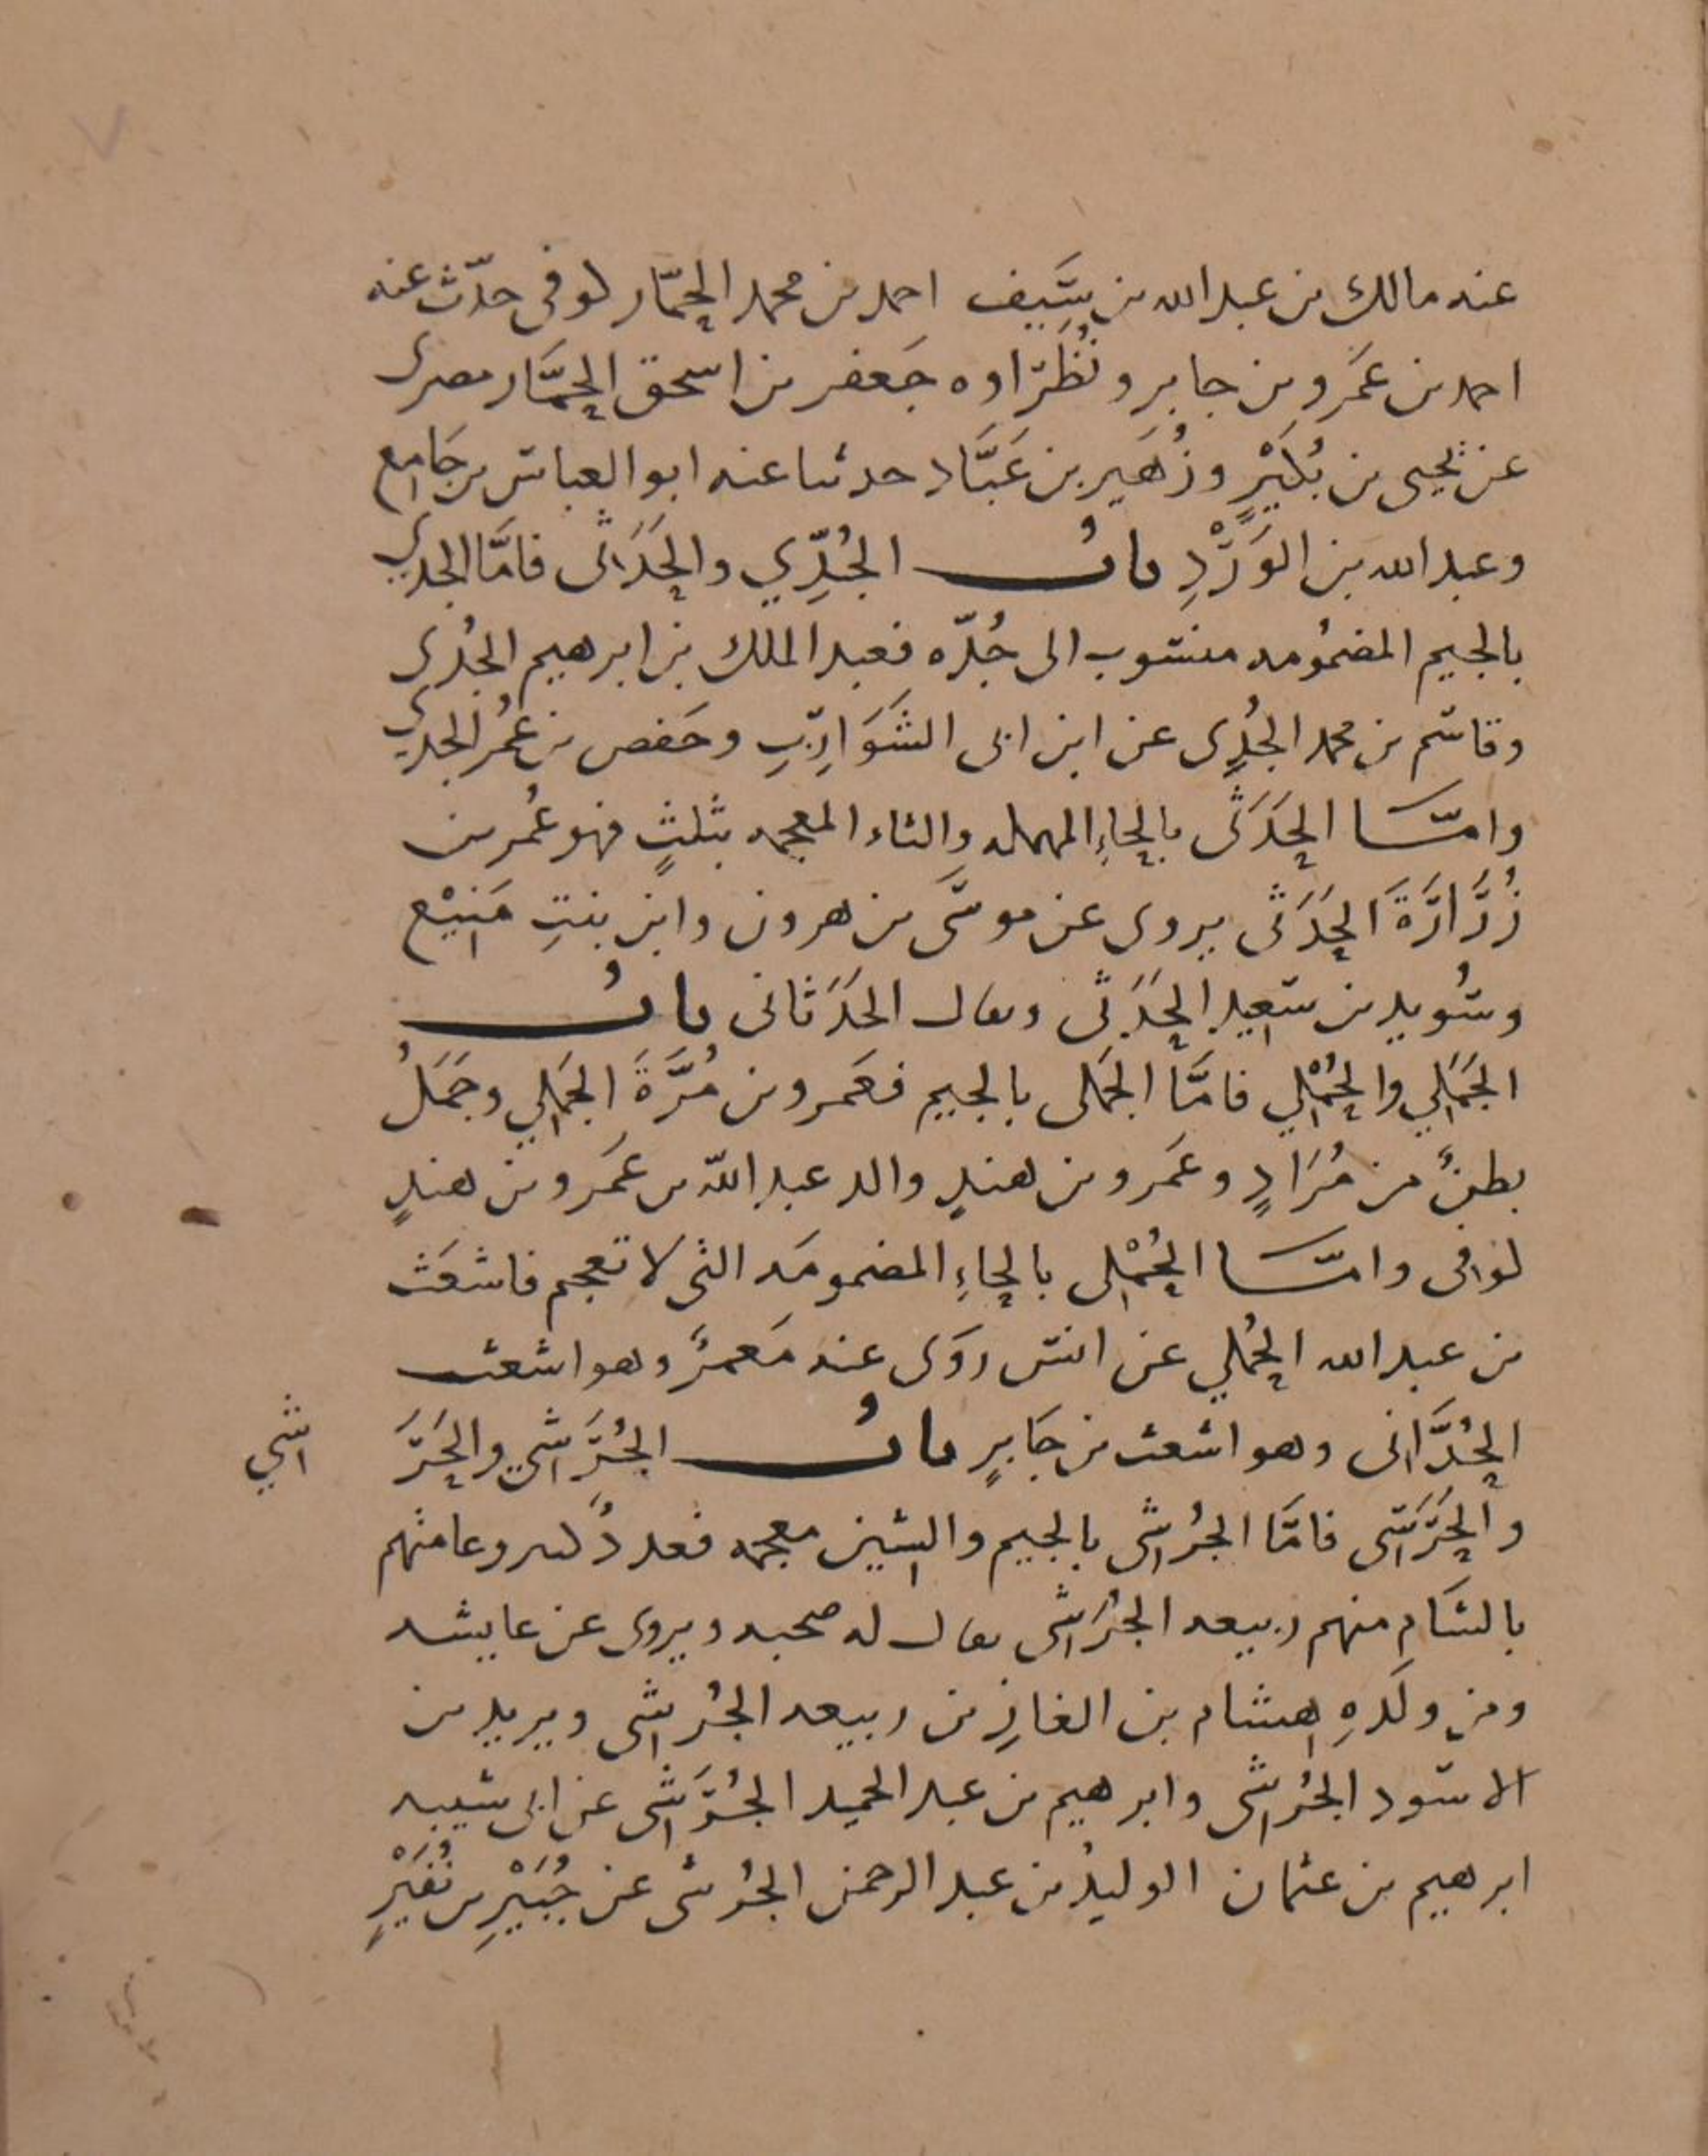 عنه مالك بن عبد الله بن سَيف احمد بن محمد الحمّار كوفى حدّث عنه
احمد بن عَمرو بن جابر ونُظَراوه جَعفر بن اسحق الحمَّار مصرى
عن يحيى بن بُكَيْرٍ وزُهَير بن عَبَّاد حدثنا عنه ابو العباس بن جَامع
وعبد الله بن الوَرْدِ بابُ الجُدِّي والحَدَثى فامَّا الجدي
بالجيم المضمُومه منسوب الى جُدّه فعبد الملك بن ابرهيم الجُدى
وقاسم بن محمد الجُدِى عن ابن ابى الشَوَارِبِ وحَفص بن عُمر الجدي
وامّا الحَدَثى بالحاءِ المهمله والثاء المعجمه بثلثٍ فهو عُمر بن
زُرَارَةَ الحَدَثى يروى عن موسَى بن هرون وابن بنتِ مَنِيْع
وسُويد بن سَعِيد الحَدَثى ويقال الحَدَثانى بابُ
الجَمَلي والحُمْلي فامَّا الجَمَلى بالجيم فعَمرو بن مُرَّةَ الجَمَلي وجَمَلُ
بطنٌ من مُرَادٍ وعَمرو بن هندٍ والد عبد الله بن عَمرو بن هندٍ
كوفى وامّا الحُمْلى بالحاءِ المضمومَه التى لا تعجم فاشعَث
بن عبد الله الحُملي عن انس روَى عنه مَعمرٌ وهو اشعث
الحُدَّانى وهو اشعث بن جَابرٍ بابُ الجُرَشي والحَرَ اشي
والحَرَسَى فامَّا الجُرشى بالجيم والشين معجمه فعددٌ كثير وعامتهم
بالشَام منهم ربيعه الجُرَشى يقال له صحبه ويروى عن عايشه
ومن ولَدِهِ هشام بن الغازِ بن ربيعه الجُرشى ويزيد بن
الاسود الجُرشى وابرهيم بن عبد الحميد الجُرَشى عن ابى شيبه
ابرهيم بن عثمان الوليدُ بن عبد الرحمن الجُرشى عن جُبَيْرِ بن نُفَيْرٍ